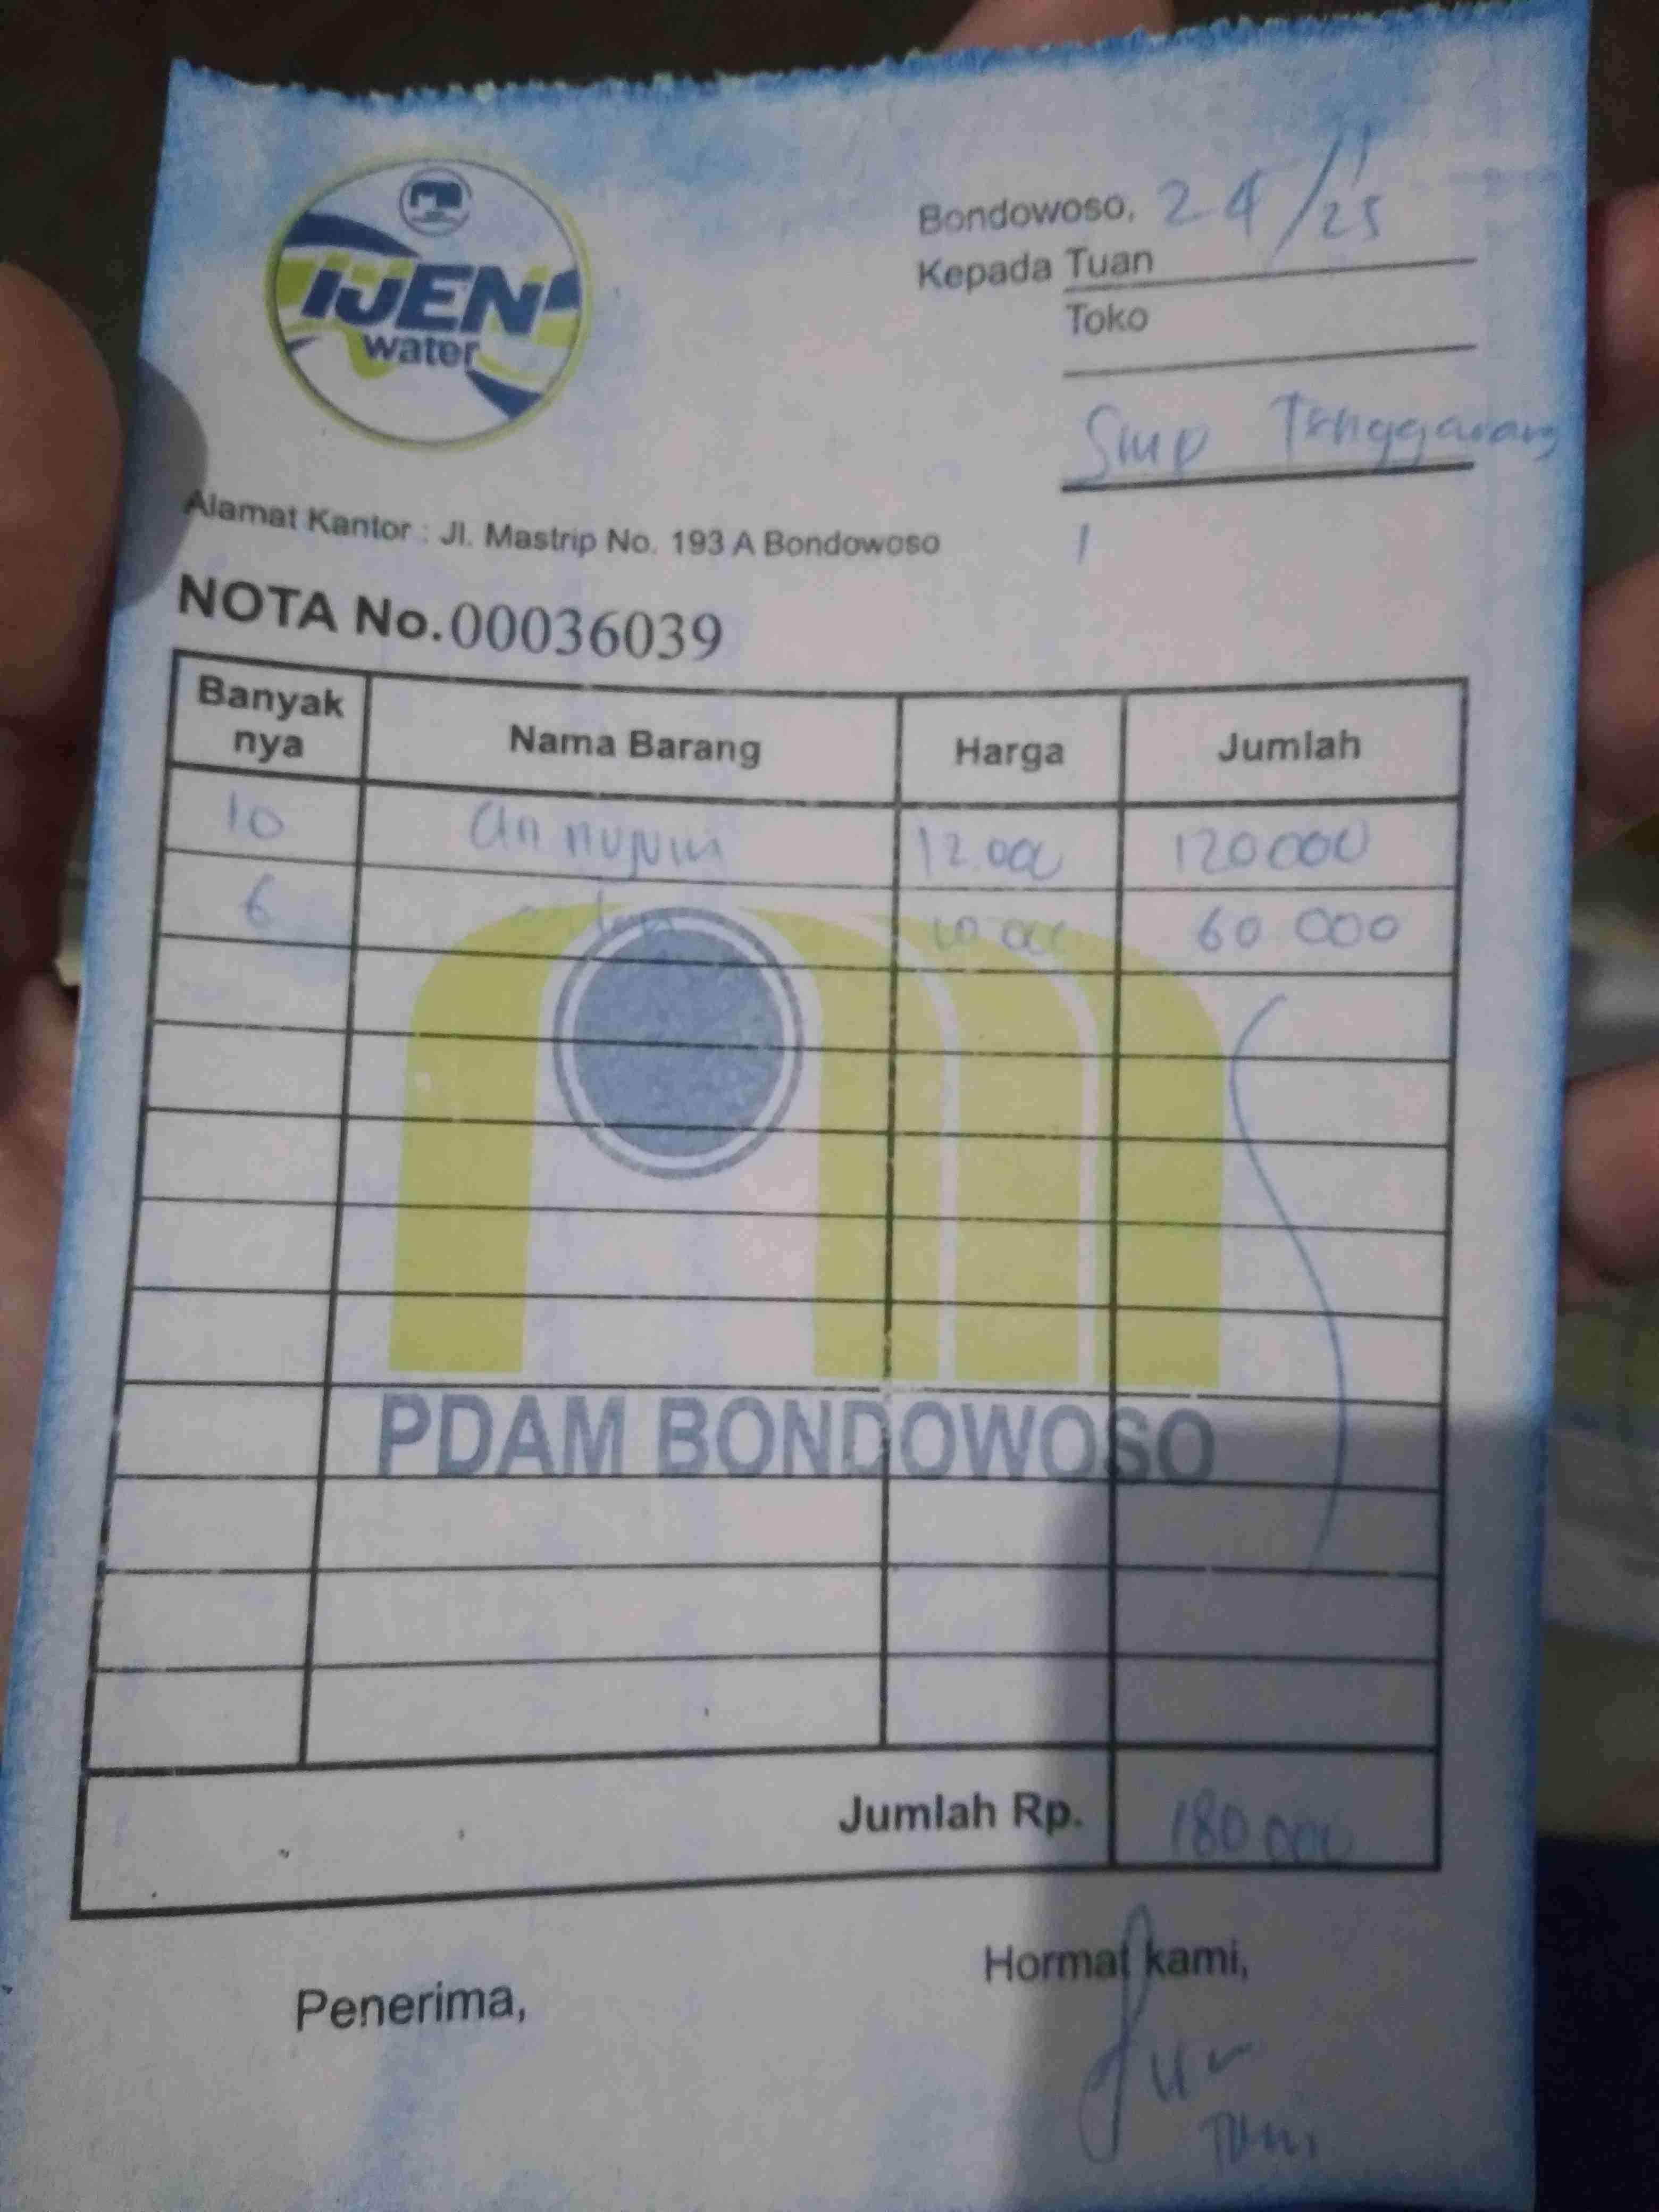 IJEN
water
Bondowoso, 24/1 25
Kepada Tuan
Toko
Smp Tenggarang
1
Alamat Kantor : Jl. Mastrip No. 193 A Bondowoso
NOTA No. 00036039
Banyak nya Nama Barang Harga Jumlah
10 An nujum 12.000 120000
6 10 000 60 000
PDAM BONDOWOSO
Jumlah Rp. 180 000
Penerima, Hormat kami,